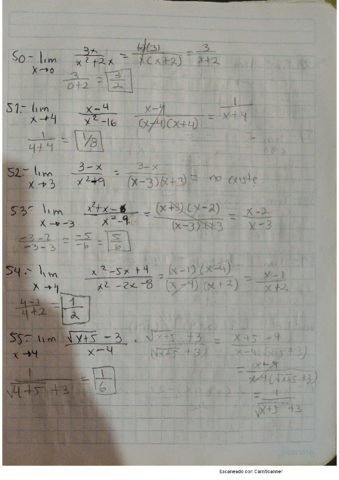 50.- lim x→0 3x / x²+2x = x(3) / x(x+2) = 3 / x+2
3 / 0+2 = 3/2
51.- lim x→4 x-4 / x²-16 = x-4 / (x-4)(x+4) = 1 / x+4
1 / 4+4 = 1/3
52.- lim x→3 3-x / x²-9 = 3-x / (x-3)(x+3) = no existe
53.- lim x→-3 x²+x-6 / x²-9 = (x+3)(x-2) / (x-3)(x+3) = x-2 / x-3
-3-2 / -3-3 = -5 / -6 = 5/6
54.- lim x→4 x²-5x+4 / x²-2x-8 = (x-1)(x-4) / (x-4)(x+2) = x-1 / x+2
4-1 / 4+2 = 1/2
55.- lim x→4 √x+5 -3 / x-4 · √x+5 +3 / √x+5 +3 = x+5-9 / x-4(√x+5 +3)
= x-4 / x-4(√x+5 +3)
1 / √4+5 +3 = 1/6
= 1 / √x+5 +3
Escaneado con CamScanner